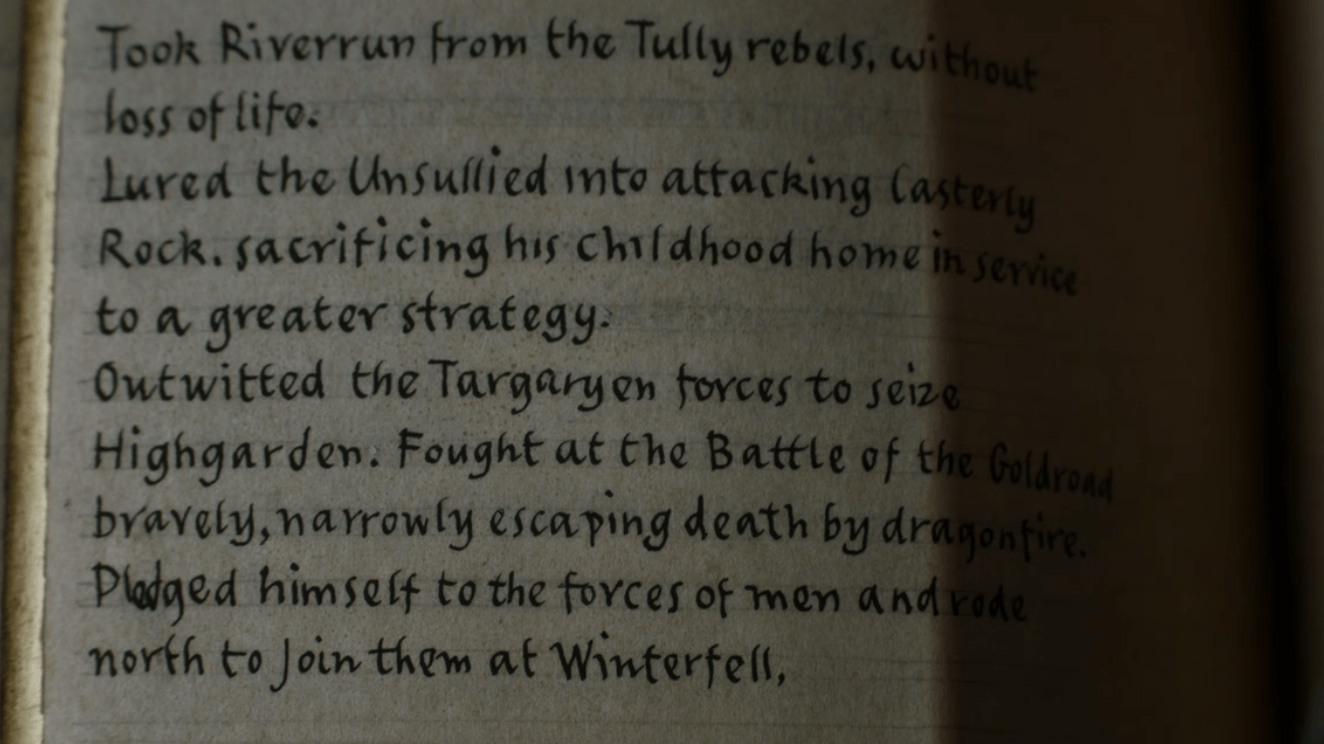 Took Riverrun from the Tully rebels, without
loss of life.
Lured the Unsullied into attacking Casterly
Rock. sacrificing his childhood home in service
to a greater strategy.
Outwitted the Targaryen forces to seize
Highgarden. Fought at the Battle of the Goldroad
bravely, narrowly escaping death by dragonfire.
Pledged himself to the forces of men and rode
north to join them at Winterfell,